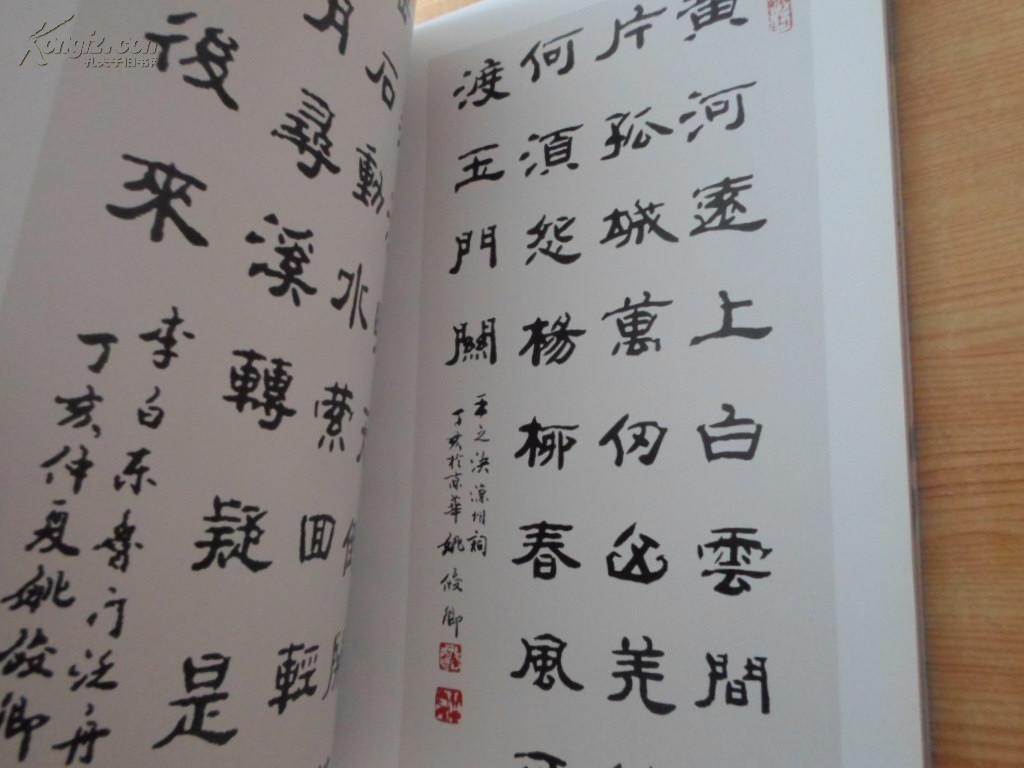 黄河遠上白雲間
片孤城萬仞山羌
何須怨楊柳春風不
渡玉門關
王之渙涼州詞
丁亥於京華姚俊卿
石動水縈回輕
月尋溪轉疑是
後來
李白東魯门泛舟
丁亥仲夏姚俊卿
Kongfz.com
孔夫子旧书网